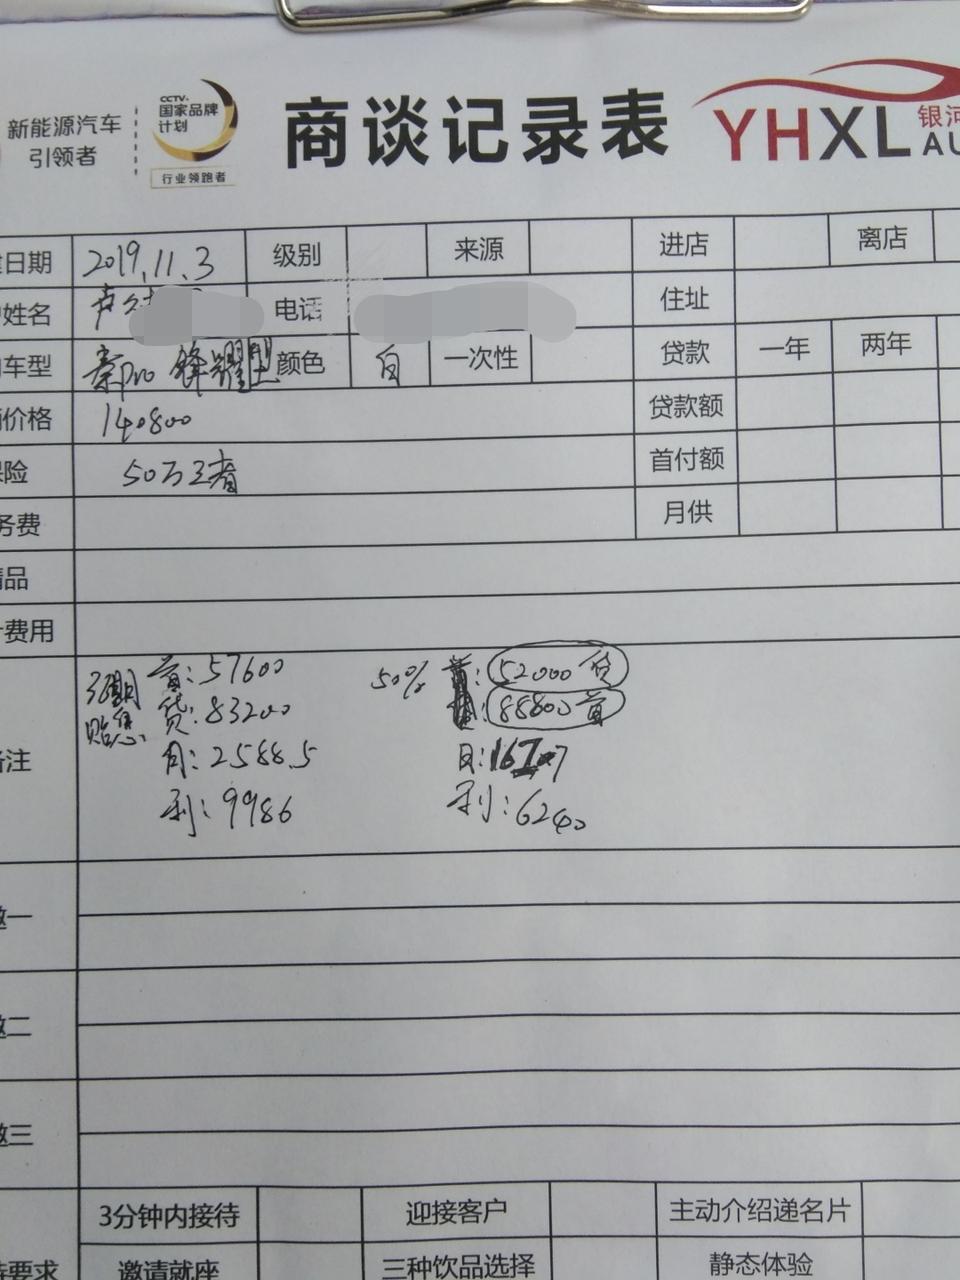 新能源汽车
引领者
CCTV.
国家品牌
计划
行业领跑者
商谈记录表
YHXL 银河
AU
日期 2019.11.3 级别 来源 进店 离店
姓名 卢 电话 住址
车型 秦Pro 锋耀型 颜色 白 一次性 贷款 一年 两年
价格 140800 贷款额
险 50万三者 首付额
务费 月供
品
费用
注
36期 首:57600 50% 首:52000 贷
贴息 贷:83200 88800 首
月:2588.5 月:16
利:9986 利:6240
一
二
三
3分钟内接待 迎接客户 主动介绍递名片
要求 邀请就座 三种饮品选择 静态体验